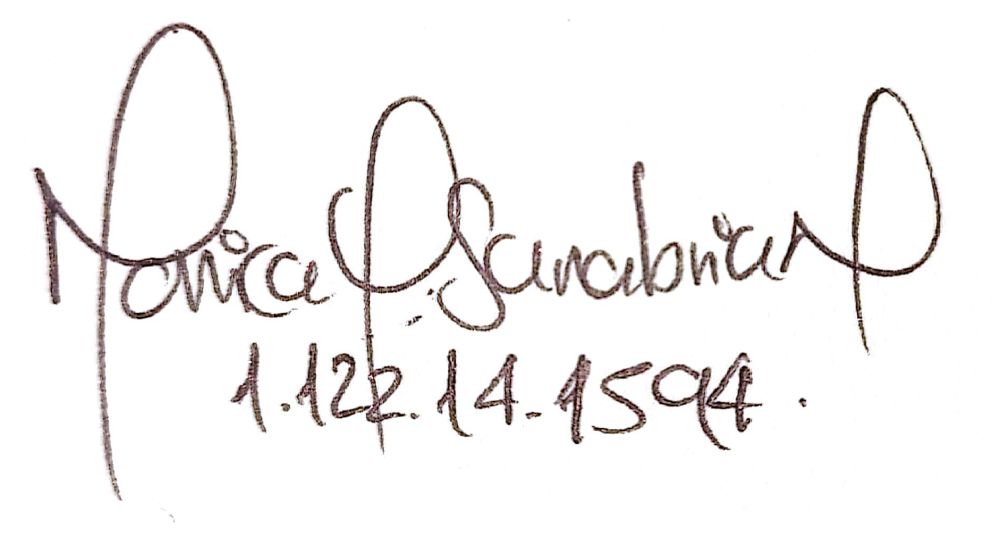 Monica P. Sanabria M
1.122.14.1594.